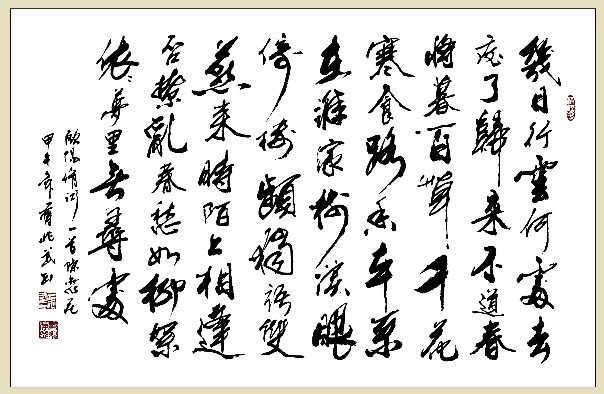 幾日行雲何處去
忘了歸來不道春
將暮百草千花
寒食路香車系
在誰家樹淚眼
倚樓頻獨語雙
燕來時陌上相逢
否撩亂春愁如柳絮
依々夢里無尋處
歐陽脩詞一首蝶恋花
甲午年